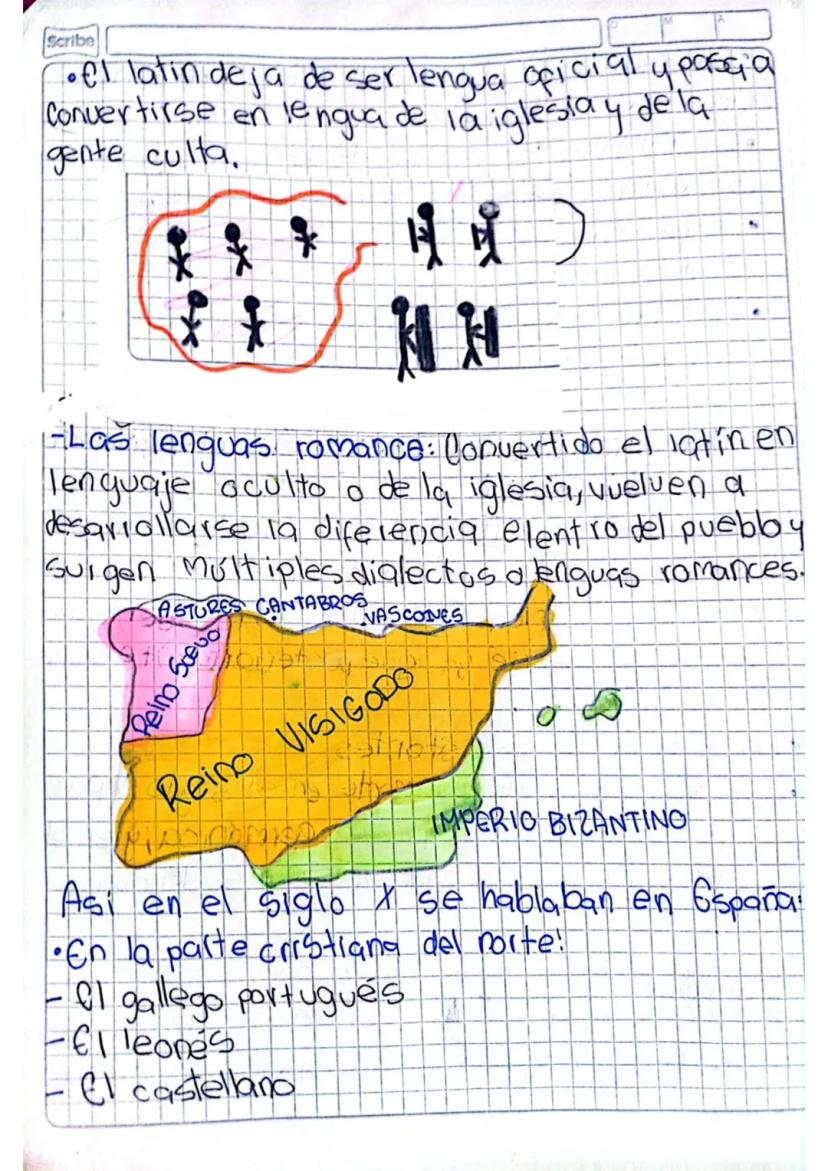 Scribe
D M A
•El latin deja de ser lengua oficial y pasa a
convertirse en lengua de la iglesia y de la
gente culta.
-Las lenguas romance: Convertido el latín en
lenguaje oculto o de la iglesia, vuelven a
desarrollarse la diferencia elentro del pueblo y
surgen múltiples dialectos o lenguas romances.
ASTURES CANTABROS VASCONES
Reino Suevo
Reino VISIGODO
IMPERIO BIZANTINO
Asi en el siglo X se hablaban en España:
•En la parte cristiana del norte:
- El gallego portugués
- El leonés
- El castellano